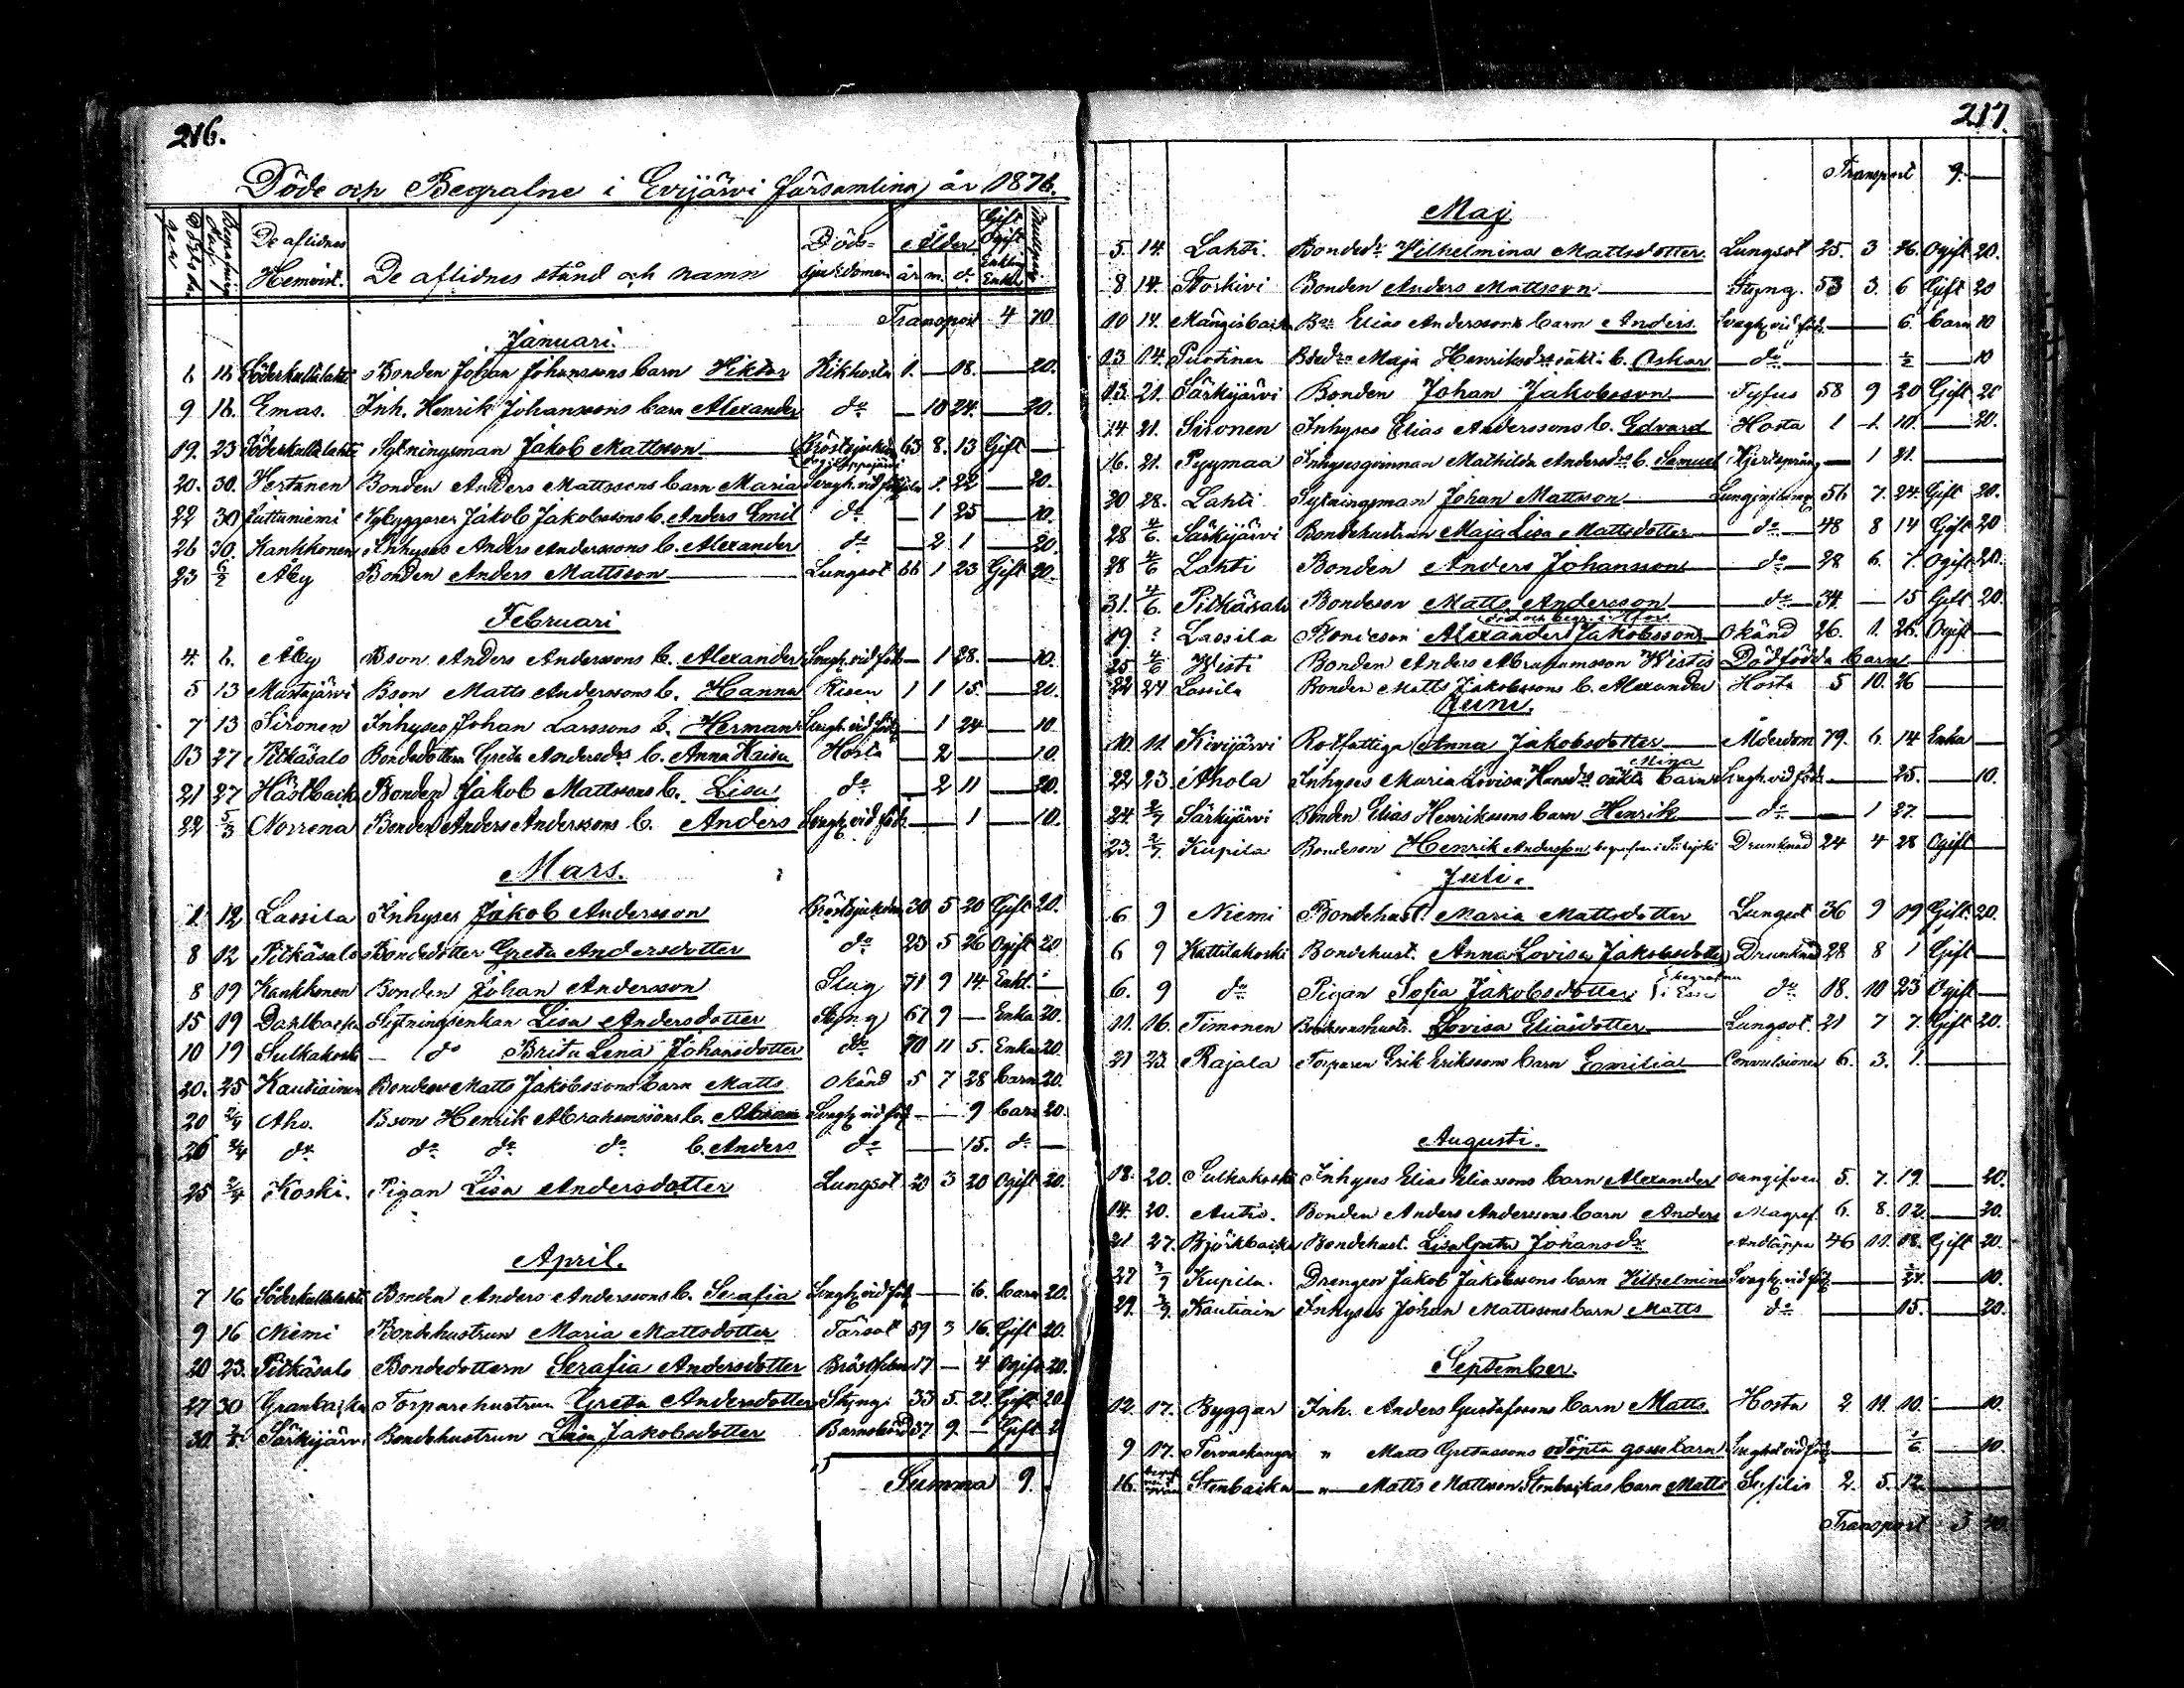 216.
Döde och Begrafne i Evijärvi församling år 1876.
De aflidnes Hemvist. De aflidnes stånd och namn Döds-sjukdomen Ålder år m. d. Gift Ogift Enkling Enka
Transport 4 70
Januari.
6 16 Söderkultalahti Bonden Johan Johanssons barn Viktor Kikhosta 1. — 18. — 20.
9 16. Emas. Inh. Henrik Johanssons barn Alexander do — 10 24. — 20.
19. 23 Söderkultalahti Sytningsman Jakob Mattsson Bröstsjukdom 63 8. 13 Gift —
20. 30. Hertunen Bonden Anders Mattssons barn Maria Svagh. vid föds. 1. 22 — 20.
22 30 Nybyggaren Jakob Jakobssons b. Anders Emil do — 1 25 — 10.
26 30. Kankkonen Inhyses Anders Anderssons b. Alexander do — 2 1 — 20.
23 6/2 Åby Bonden Anders Mattsson Lungsot 66 1 23 Gift 20.
Februari
4. 6. Åby Bson Anders Anderssons b. Alexander Svagh. vid föds. — 1 28. — 10.
5 13 Mustajärvi Bson Matts Anderssons b. Hanna Risen 1 1 15. — 20.
7 13 Sironen Inhyses Johan Larssons b. Herman Svagh. vid föds. — 1 24 — 10
13 27 Pitkäsalo Bondedottern Greta Andersdrs b. Anna Kaisa Hosta — 2 — — 10.
21 27 Hästbacka Bonden Jakob Mattssons b. Lisa do — 2 11 — 20.
22 5/3 Norrena Bonden Anders Anderssons b. Anders Svagh. vid föds. — — 1 — 10.
Mars.
1 12 Lassila Inhyses Jakob Andersson Bröstsjukdom 30 5 20 Gift 20.
8 12 Pitkäsalo Bondedotter Greta Andersdotter do 23 5 26 Ogift 20
8 19 Kankkonen Bonden Johan Andersson Slag 71 9 14 Enkl. —
15 19 Dahlbacka Sytningsenkan Lisa Andersdotter Styng 67 9 — Enka 20.
10 19 Sulkakoski — do Brita Lena Johansdotter do 70 11 5. Enka 20.
20. 25 Kautiainen Bonden Matts Jakobssons barn Matts Okänd 5 7 28 barn 20.
20 2/4 Aho. Bson Henrik Abrahamssons b. Abram Svagh. vid föds — — 9 barn 20.
26 2/4 do do do do b. Anders do — — 15. do —
25 2/4 Koski. Pigan Lisa Andersdotter Lungsot 20 3 20 Ogift 20.
April.
7 16 Söderkultalahti Bonden Anders Anderssons b. Serafia Svagh. vid föds — — 6. barn 20.
9 16 Niemi Bondehustrun Maria Mattsdotter Tärsot 59 3 16. Gift 20.
20 23. Pitkäsalo Bondedottern Serafia Andersdotter Bröstfeber 17 — 4 Ogift 20.
27 30 Granbacka Torparehustrun Greta Andersdotter Styng 33 5. 21. Gift 20
30. Särkijärvi Bondehustrun Lisa Jakobsdotter Barnsbörd 37 9. — Gift
Summa 9.
217.
Transport 9. —
Maj
5. 14. Lahti. Bondedr Wilhelmina Mattsdotter Lungsot 25. 3 26. Ogift 20.
8 14. Storkivi Bonden Anders Mattsson Styng. 53 3. 6 Gift 20
10 14. Mängisbacka Bson Elias Anderssons barn Anders. Svagh. vid föds. — — 6. barn 10
13 14. Puotinen Bdedrs Maja Henriksdrs oäkta b. Oskar do — — 1/2 — 10
13. 21. Särkijärvi Bonden Johan Jakobsson Tyfus 58 9 20 Gift 20
14 21. Sironen Inhyses Elias Anderssons b. Edvard Hosta 1 1. 10. — 20.
16. 21. Pyymaa Inhysesqvinnan Mathilda Andersdrs b. Samuel Hjertsprång — 1 21. —
20 28. Lahti Sytningsman Johan Mattsson Lunginflamm. 56 7. 24. Gift 20.
28 4/6. Särkijärvi Bondehustrun Maja Lisa Mattsdotter do 48 8 14 Gift 20
28 4/6 Lahti Bonden Anders Johansson do 28 6. 7. Ogift 20.
31. 4/6. Pitkäsalo Bondeson Matts Andersson do 34. — 15 Gift 20.
19. ? Lassila Bondeson Alexander Jakobsson Okänd 26. 1. 26. Ogift —
25 4/6 Wisti Bonden Anders Abrahamsson Wistis Dödfödda barn
22 27 Lassila Bonden Matts Jakobssons b. Alexander Hosta 5 10. 26
Juni.
10. 11. Kivijärvi Rotfattiga Anna Jakobsdotter Ålderdom 79. 6. 14 Enka —
22 23 Ahola Inhyses Maria Lovisa Hansdrs oäkta barn Mina Svagh. vid föds — — 25. — 10.
24. 2/7 Särkijärvi Bonden Elias Henrikssons barn Henrik do — 1 27. —
23. 2/7. Kupila Bondeson Henrik Andersson, begrafven i Drunknad 24 4 28 Ogift —
Juli.
6. 9 Niemi Bondehust. Maria Mattsdotter Lungsot 36 9 19 Gift 20.
6 9 Kattilakoski Bondehust. Anna Lovisa Jakobsdotter Drunknad 28 8 1 Gift —
6. 9 do Pigan Sofia Jakobsdotter begrafna i Esse do 18. 10 23 Ogift —
11. 16. Timonen Bondsonshustr. Lovisa Eliasdotter Lungsot. 21 7 7. Gift 20.
21 23. Rajala Torparen Erik Erikssons barn Emilia Convulsioner 6. 3. 1. —
Augusti.
18. 20. Sulkakoski Inhyses Elias Eliassons barn Alexander oangifven 5. 7. 19. — 20.
14. 20. Autio. Bonden Anders Anderssons barn Anders Magref 6. 8. 12. — 20.
21 27. Björkbacka Bondehust. Lisa Greta Johansdr Andtäppa 46 11. 18. Gift 20.
27 3/9 Kupila. Drengen Jakob Jakobssons barn Vilhelmina Svagh. vid föds — — 1/24. — 10.
29. 3/9. Kautiain Inhyses Johan Mattssons barn Matts do — — 15. — 20.
September.
12. 17. Byggar Inh. Anders Gustafssons barn Matts. Hosta 2 11. 10. — 10.
9 17. Tervaskangas " Matts Gretassons odöpta gossebarn Svaghet vid föds — — 1/6. — 10.
16. Stenbacka — " — Matts Mattsson Stenbackas barn Matts Syfilis 2. 5. 12.
Transport 5